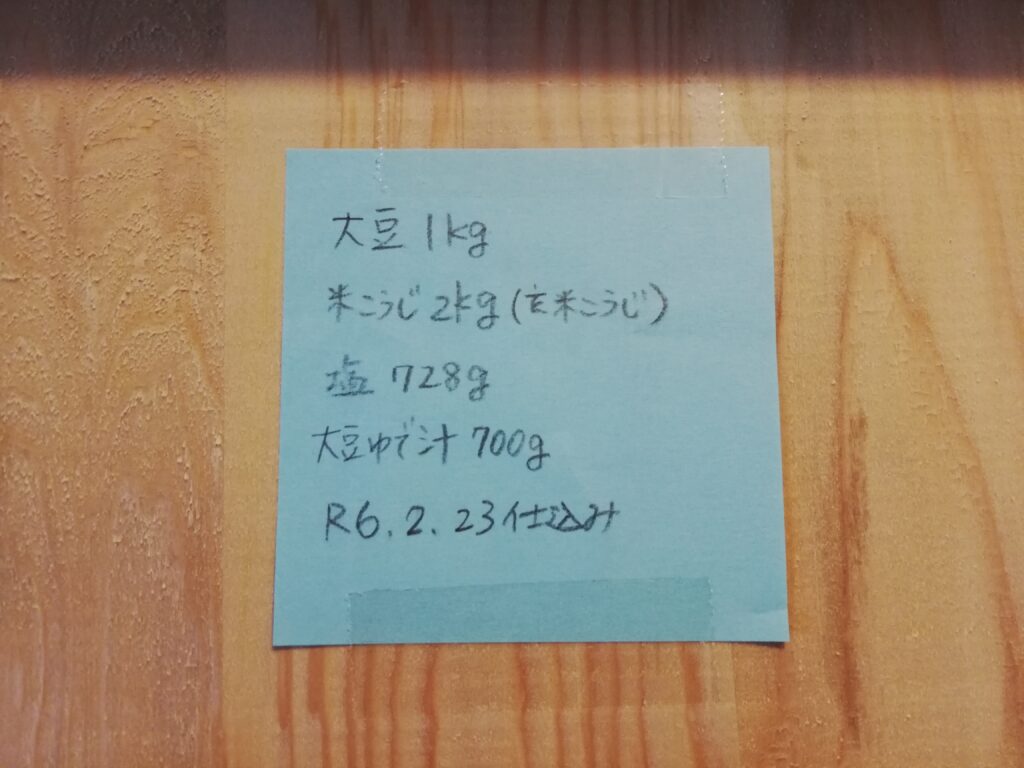 大豆 1kg
米こうじ 2kg (玄米こうじ)
塩 728g
大豆ゆで汁 700g
R6.2.23仕込み